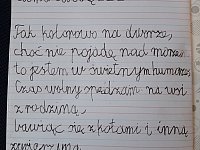 Tak kolorowo na dworze,
choć nie pojadę nad morze
to jestem w świetnym humorze,
Czas wolny spędzam na wsi
z rodziną,
bawiąc się z kotami i inną
zwierzyną